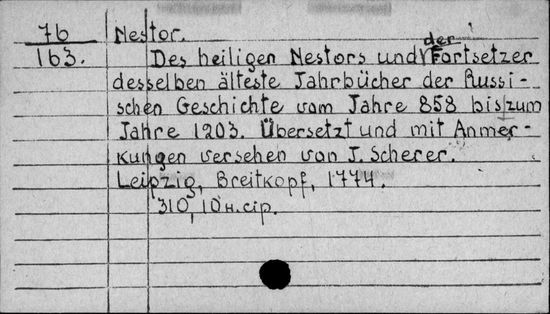 76 Nestor.
163. Des heiligen Nestors und der Fortsetzer
desselben älteste Jahrbücher der Russi-
schen Geschichte vom Jahre 858 bis zum
Jahre 1203. Übersetzt und mit Anmer-
kungen versehen von J. Scherer.
Leipzig, Breitkopf, 1774.
310, 10 н. стр.